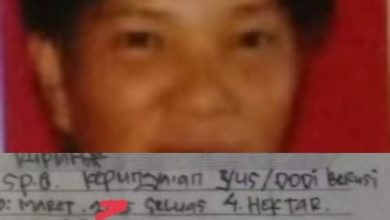 SP.B. KEPUNYAIAN 3/US/DODI BERUSI
D: MARET. SELUAS 4. HEKTAR.